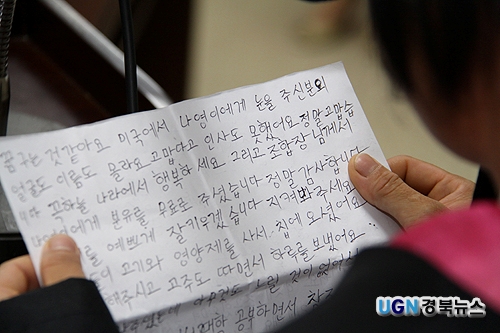 꿈꾸는 것같아요 미국에서 나영이에게 눈을 주신분의
얼굴도 이름도 몰라요 고맙다고 인사도 못했어요 정말 고맙습
니다 꼭하늘 나라에서 행복하세요 그리고 조합장님께서
나영이에게 분유를 무료로 주셨습니다 정말 감사합니다
예쁘게 잘키우겠습니다 지켜봐주세요
고기와 영양제를 사서 집에 오셨어요
해주시고 고추도 따면서 하루를 보냈어요
공부하면서
UGN경북뉴스